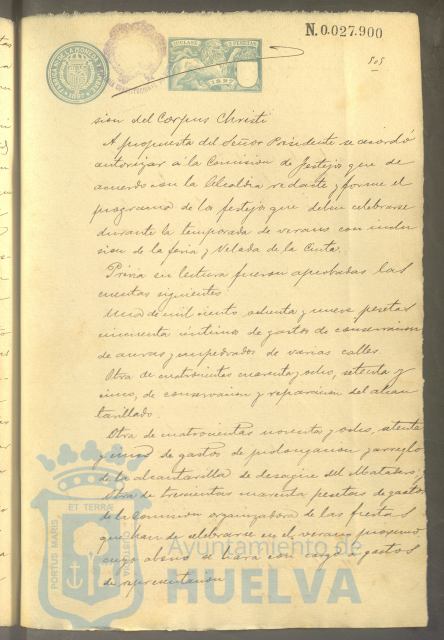 N.0.027.900
505
sion del Corpus Christi
A propuesta del Señor Presidente se acordó
autorizar a la Comision de festejos que de
acuerdo con la Alcaldia redacte y forme el
programa de los festejos que deben celebrarse
durante la temporada de verano con inclu
sion de la feria y Velada de la Cinta.
Previa su lectura fueron aprobadas las
cuentas siguientes
Una de mil ciento ochenta y nueve pesetas
cincuenta centimos de gastos de conservacion
de aceras y empedrados de varias calles
Otra de cuatrocientas cuarenta y ocho, setenta y
cinco, de conservacion y reparacion del alcan
tarillado.
Otra de cuatrocientas noventa y ocho, setenta
y cinco de gastos de prolongacion y arreglo
de la alcantarilla de desagüe del Matadero y
otra de trescientas noventa pesetas de gastos
de la Comision organizadora de las fiestas
que han de celebrarse en el verano proximo
cuyo abono se hara con cargo a gastos
de representacion
PORTUS MARIS
ET TERRÆ
Ayuntamiento de
HUELVA